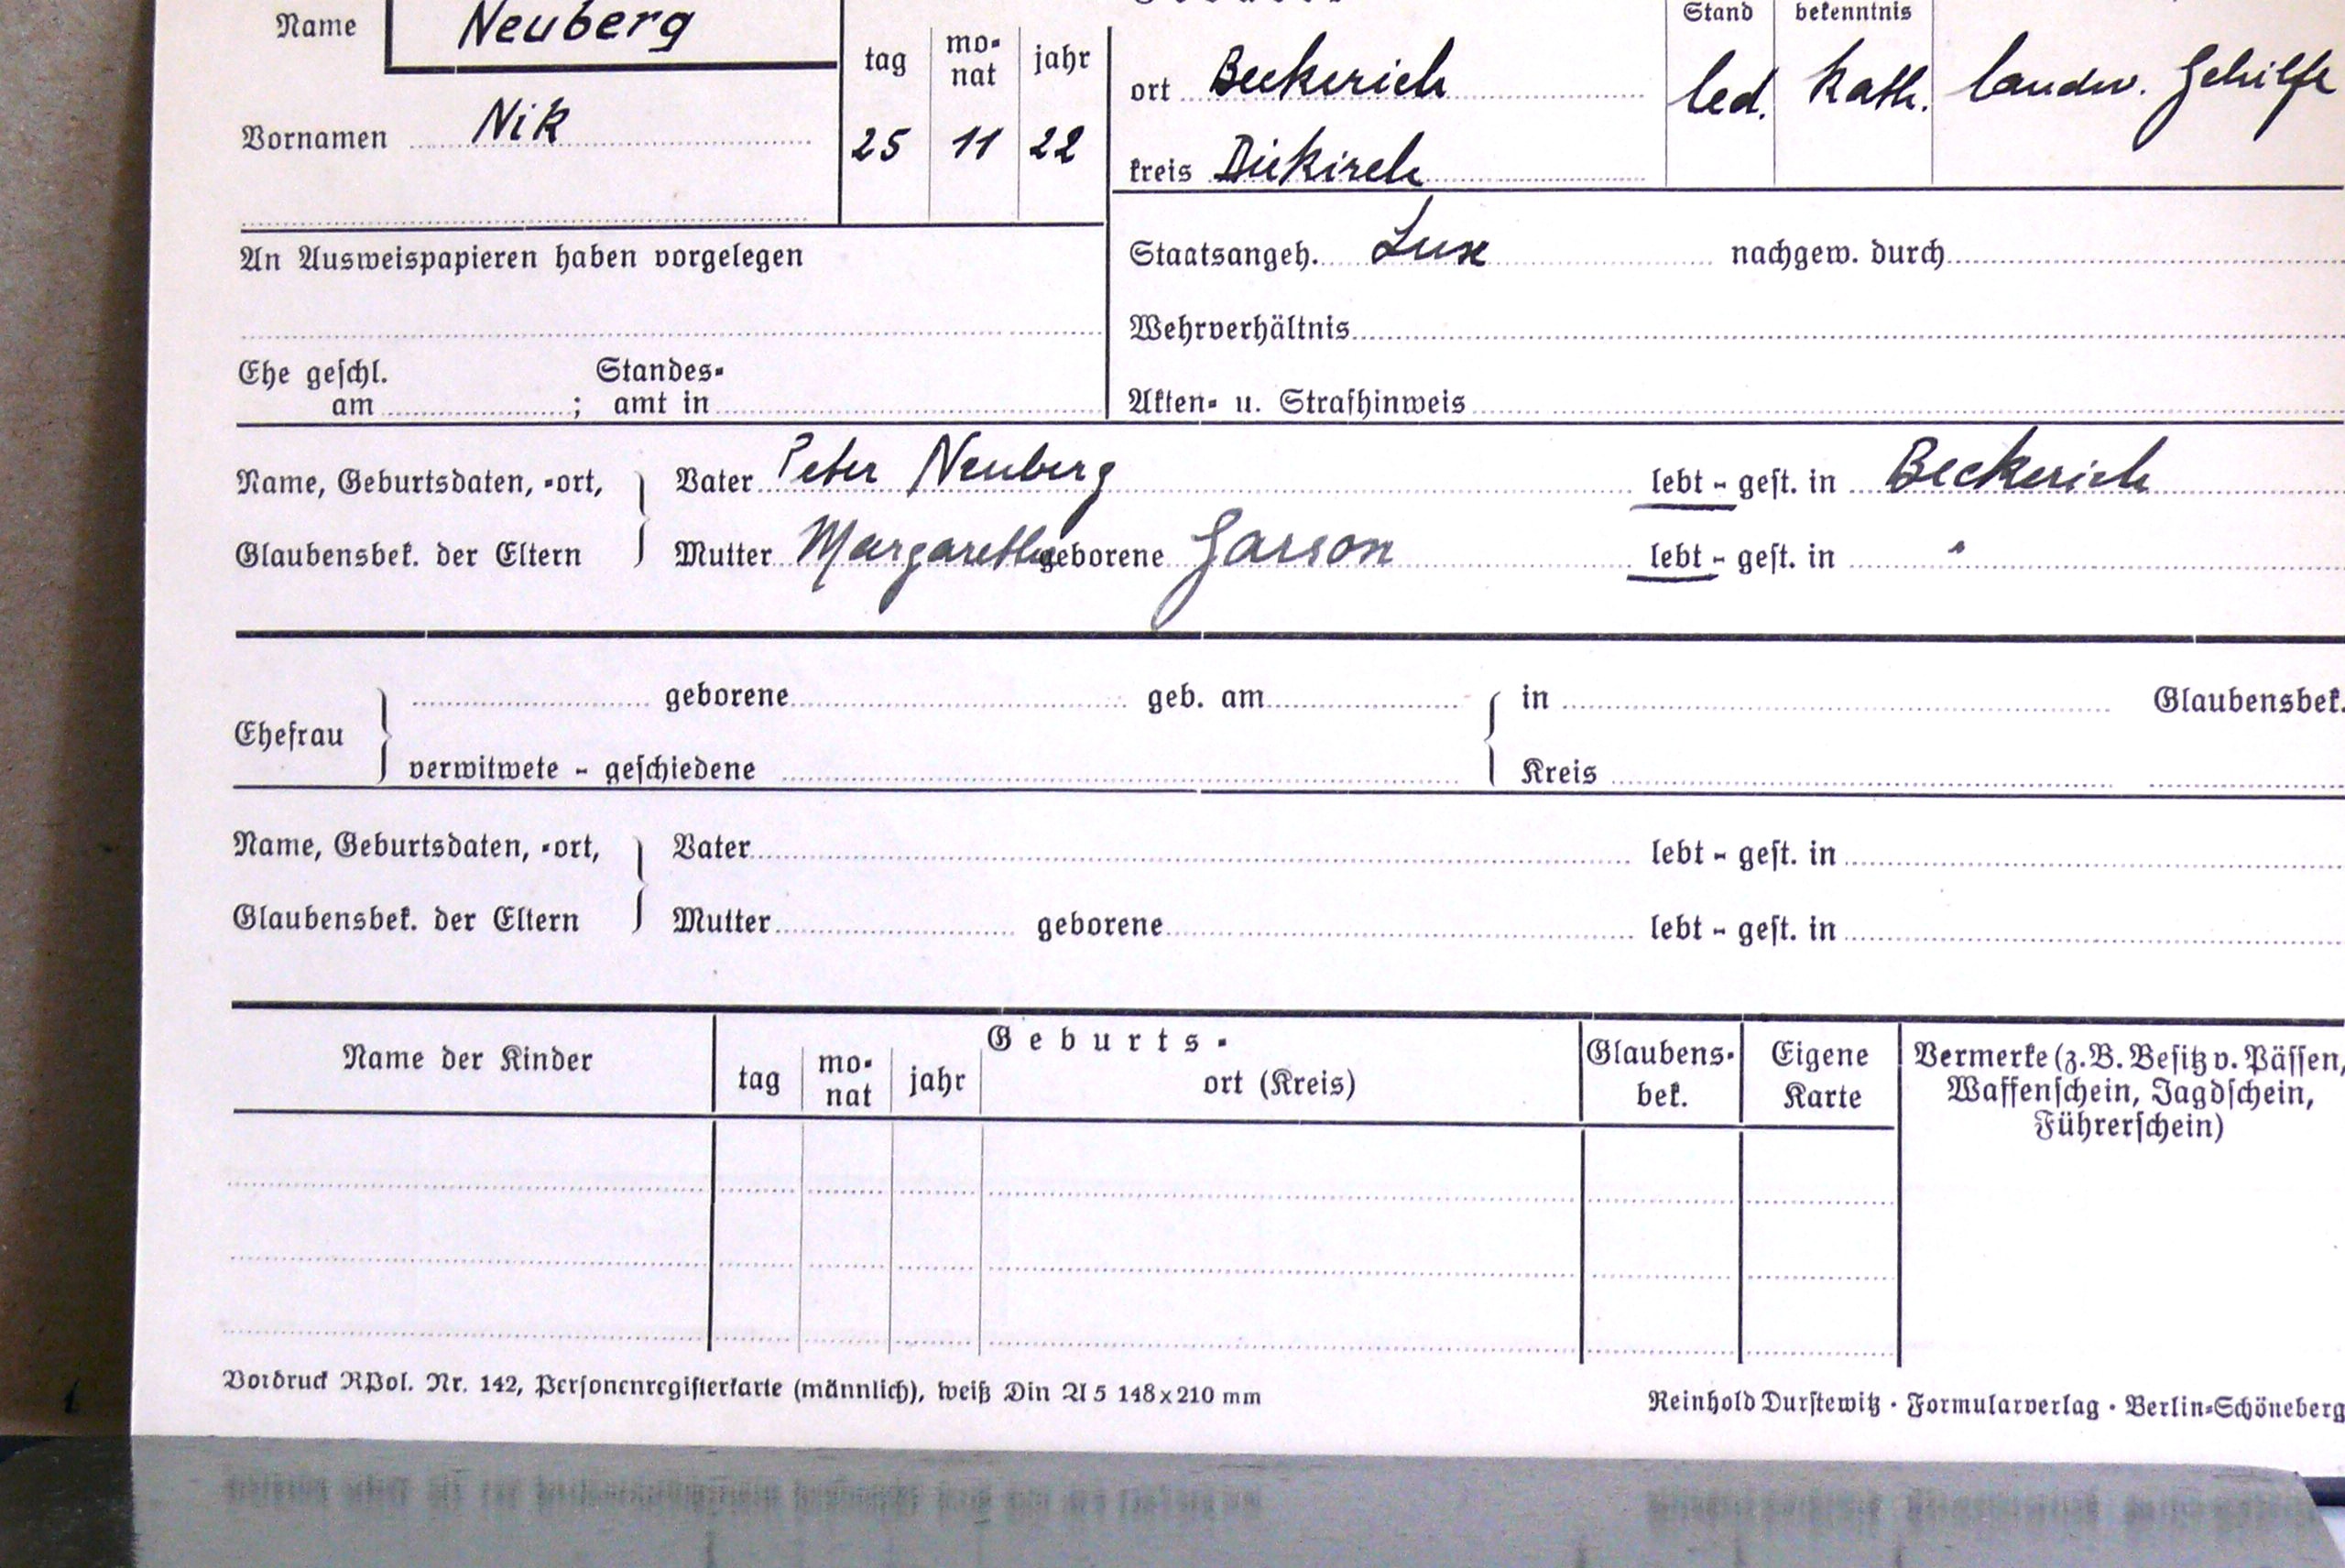 Name Neuberg
Stand bekenntnis
tag mo-nat jahr
ort Beckerich
led. kath. landw. Gehilfe
Vornamen Nik
25 11 22
kreis Diekirch
An Ausweispapieren haben vorgelegen
Staatsangeh. Lux nachgew. durch
Wehrverhältnis
Ehe geschl. am ; Standes-amt in
Akten- u. Strafhinweis
Name, Geburtsdaten, -ort, Vater Peter Neuberg lebt - gest. in Beckerich
Glaubensbek. der Eltern Mutter Margarethe geborene Garson lebt - gest. in "
geborene geb. am in Glaubensbek.
Ehefrau
verwitwete - geschiedene Kreis
Name, Geburtsdaten, -ort, Vater lebt - gest. in
Glaubensbek. der Eltern Mutter geborene lebt - gest. in
Name der Kinder Geburts- Glaubens-bek. Eigene Karte Vermerke (z. B. Besitz v. Pässen,
tag mo-nat jahr ort (Kreis) Waffenschein, Jagdschein,
Führerschein)
Vordruck RPol. Nr. 142, Personenregisterkarte (männlich), weiß Din A 5 148 x 210 mm
Reinhold Durstewitz · Formularverlag · Berlin-Schöneberg